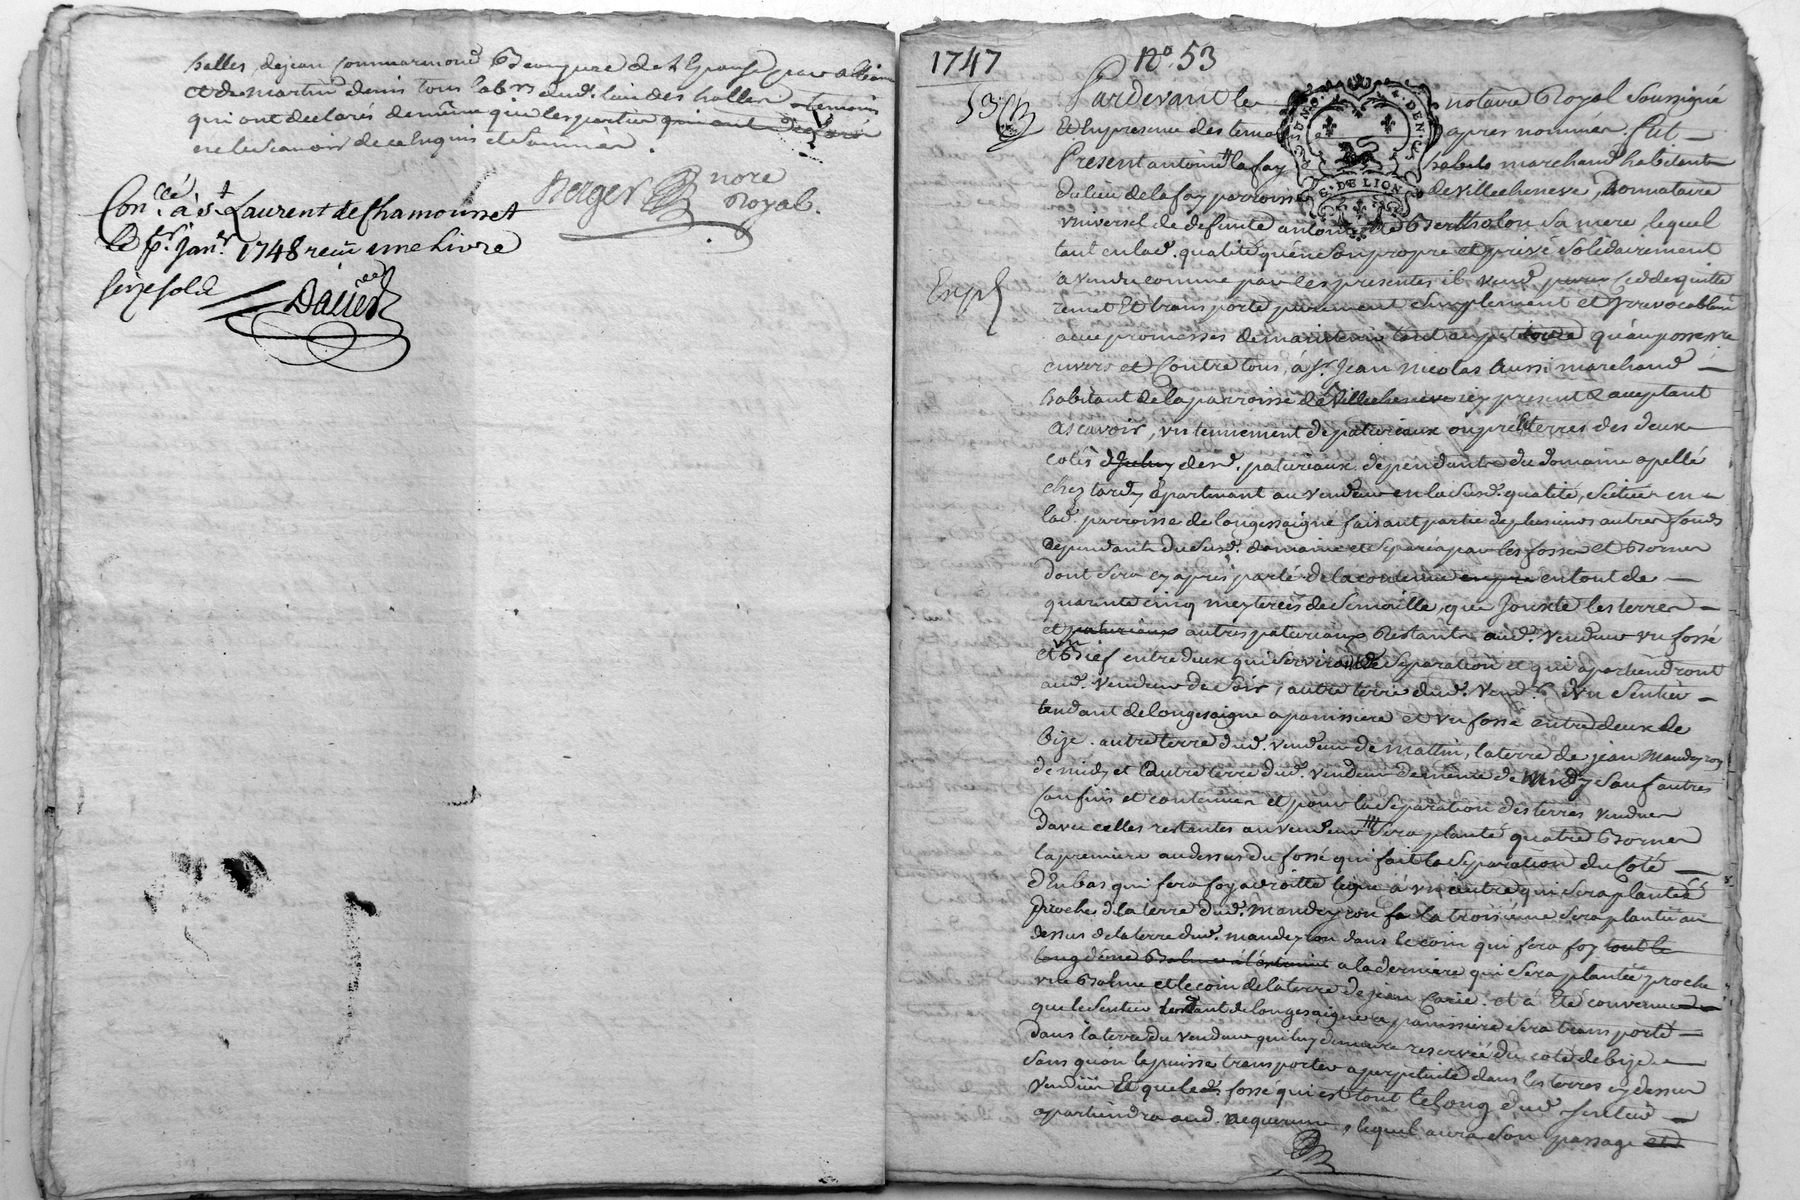 halles, de jean
et de martin denis tous lab.rs aud. lieu des halles temoins
qui ont declarés de même que les parties qui ont declaré
ne le scavoir de ce enquis et sommés.
Berger nore
Royal.
Con.llé à s.t Laurent de Chamousset
le p.r jan.r 1748 reçu une Livre
seize sols
Daiier
1747
n.o 53
53
Exp.
Pardevant le notaire Royal soussigné
Et En presence des temoins apres nommés. fut
Present antoine la fay marchand habitant
du lieu de la fay parroisse de villecheneve, Donnataire
universel de deffunte antoinette Bertholon sa mere lequel
tant en lad. qualité qu'en son propre et privé solidairement
a vendu comme par les presentes il vend cede quitte
remet Et transporte purement simplement et irrevocablem.
avec promesses de maintenir tant au petitoire qu'au possess.re
envers et Contre tous, à s.r Jean Nicolas aussi marchand
habitant de la parroisse de Villecheneve icy present & acceptant
ascavoir, un tennement de patureaux ou pré Et terres des deux
cotés desd. patureaux dependants du domaine apellé
chez tardy apartenant au vendeur en la susd. qualité, scitué en
lad. parroisse de longessaigne faisant partie de plusieurs autres fonds
dependants du susd. domaine et separés par les fossés et Bornes
dont sera cy apres parlé de la contenue en tout de
quarente cinq meyterées de semaille, que Jouxte les terres
et patureaux autres patureaux Restants aud. vendeur un fossé
et un Bief entre deux qui servira de separation et qui apartiendront
aud. vendeur de soir, autre terre dud. vend.r Et un sentier
tendant de longesaigne a panissiere et un fossé entre deux de
bize. autre terre dud. vendeur de mattin, la terre de jean Maudeyron
de midy et l'autre terre dud. vendeur de même de Midy sauf autres
confins et contenues et pour la separation des terres vendues
d'avec celles restantes au vendeur sera planté quatre Bornes
la premiere au dessus du fossé qui fait la separation du Coté
d'En bas qui fera foy a droitte ligne à un autre qui sera plantée
proches de la terre dud. maudeyron la troisieme sera plantée au
dessus de la terre dud. maudeyron dans le coin qui fera foy tout le
long d'une Balme a la derniere qui sera plantée proche
une Balme et le coin de la terre de jean Carie. et à Eté convenu
que le sentier tendant de longesaigne a panissiere sera transporté
dans la terre du vendeur qui luy demeure reservée du coté de bize
sans qu'on le puisse transporter a perpetuité dans les terres cy dessus
Vendües Et que led. fossé qui est tout le long dud. sentier
apartiendra aud. acquereur, lequel aura son passage